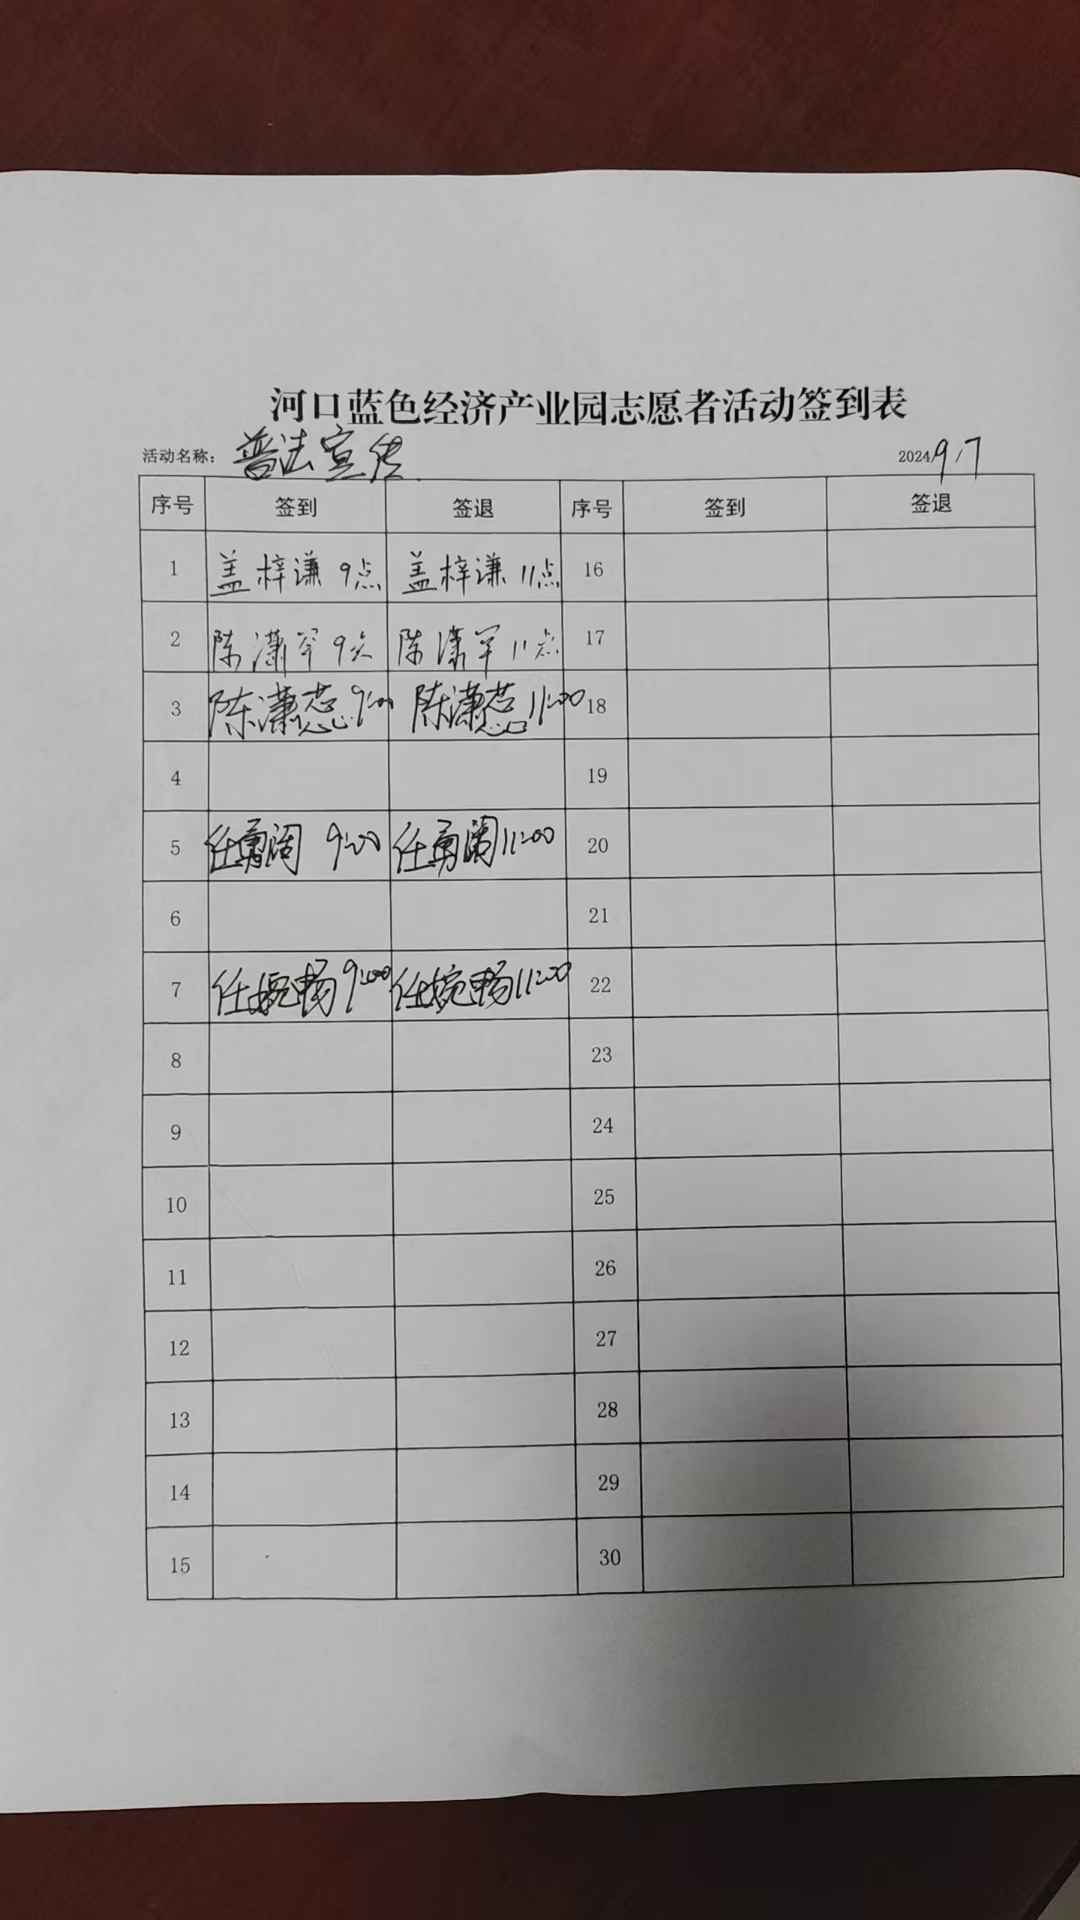 河口蓝色经济产业园志愿者活动签到表
活动名称: 普法宣传 2024 9/7
序号 签到 签退 序号 签到 签退
1 盖梓谦 9点 盖梓谦 11点 16
2 陈潇军 9点 陈潇军 11点 17
3 陈潇蕊 9:00 陈潇蕊 11:00 18
4 19
5 任勇阔 9:00 任勇阔 11:00 20
6 21
7 任婉畅 9:00 任婉畅 11:00 22
8 23
9 24
10 25
11 26
12 27
13 28
14 29
15 30